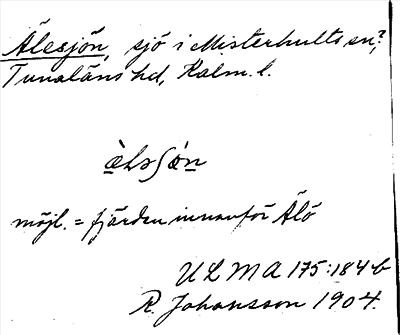 Älesjön, sjö i Misterhults sn?,
Tunaläns hd, Kalm. l.
möjl. = fjärden innanför Älö
ULMA 175:184 b
R. Johansson 1904.